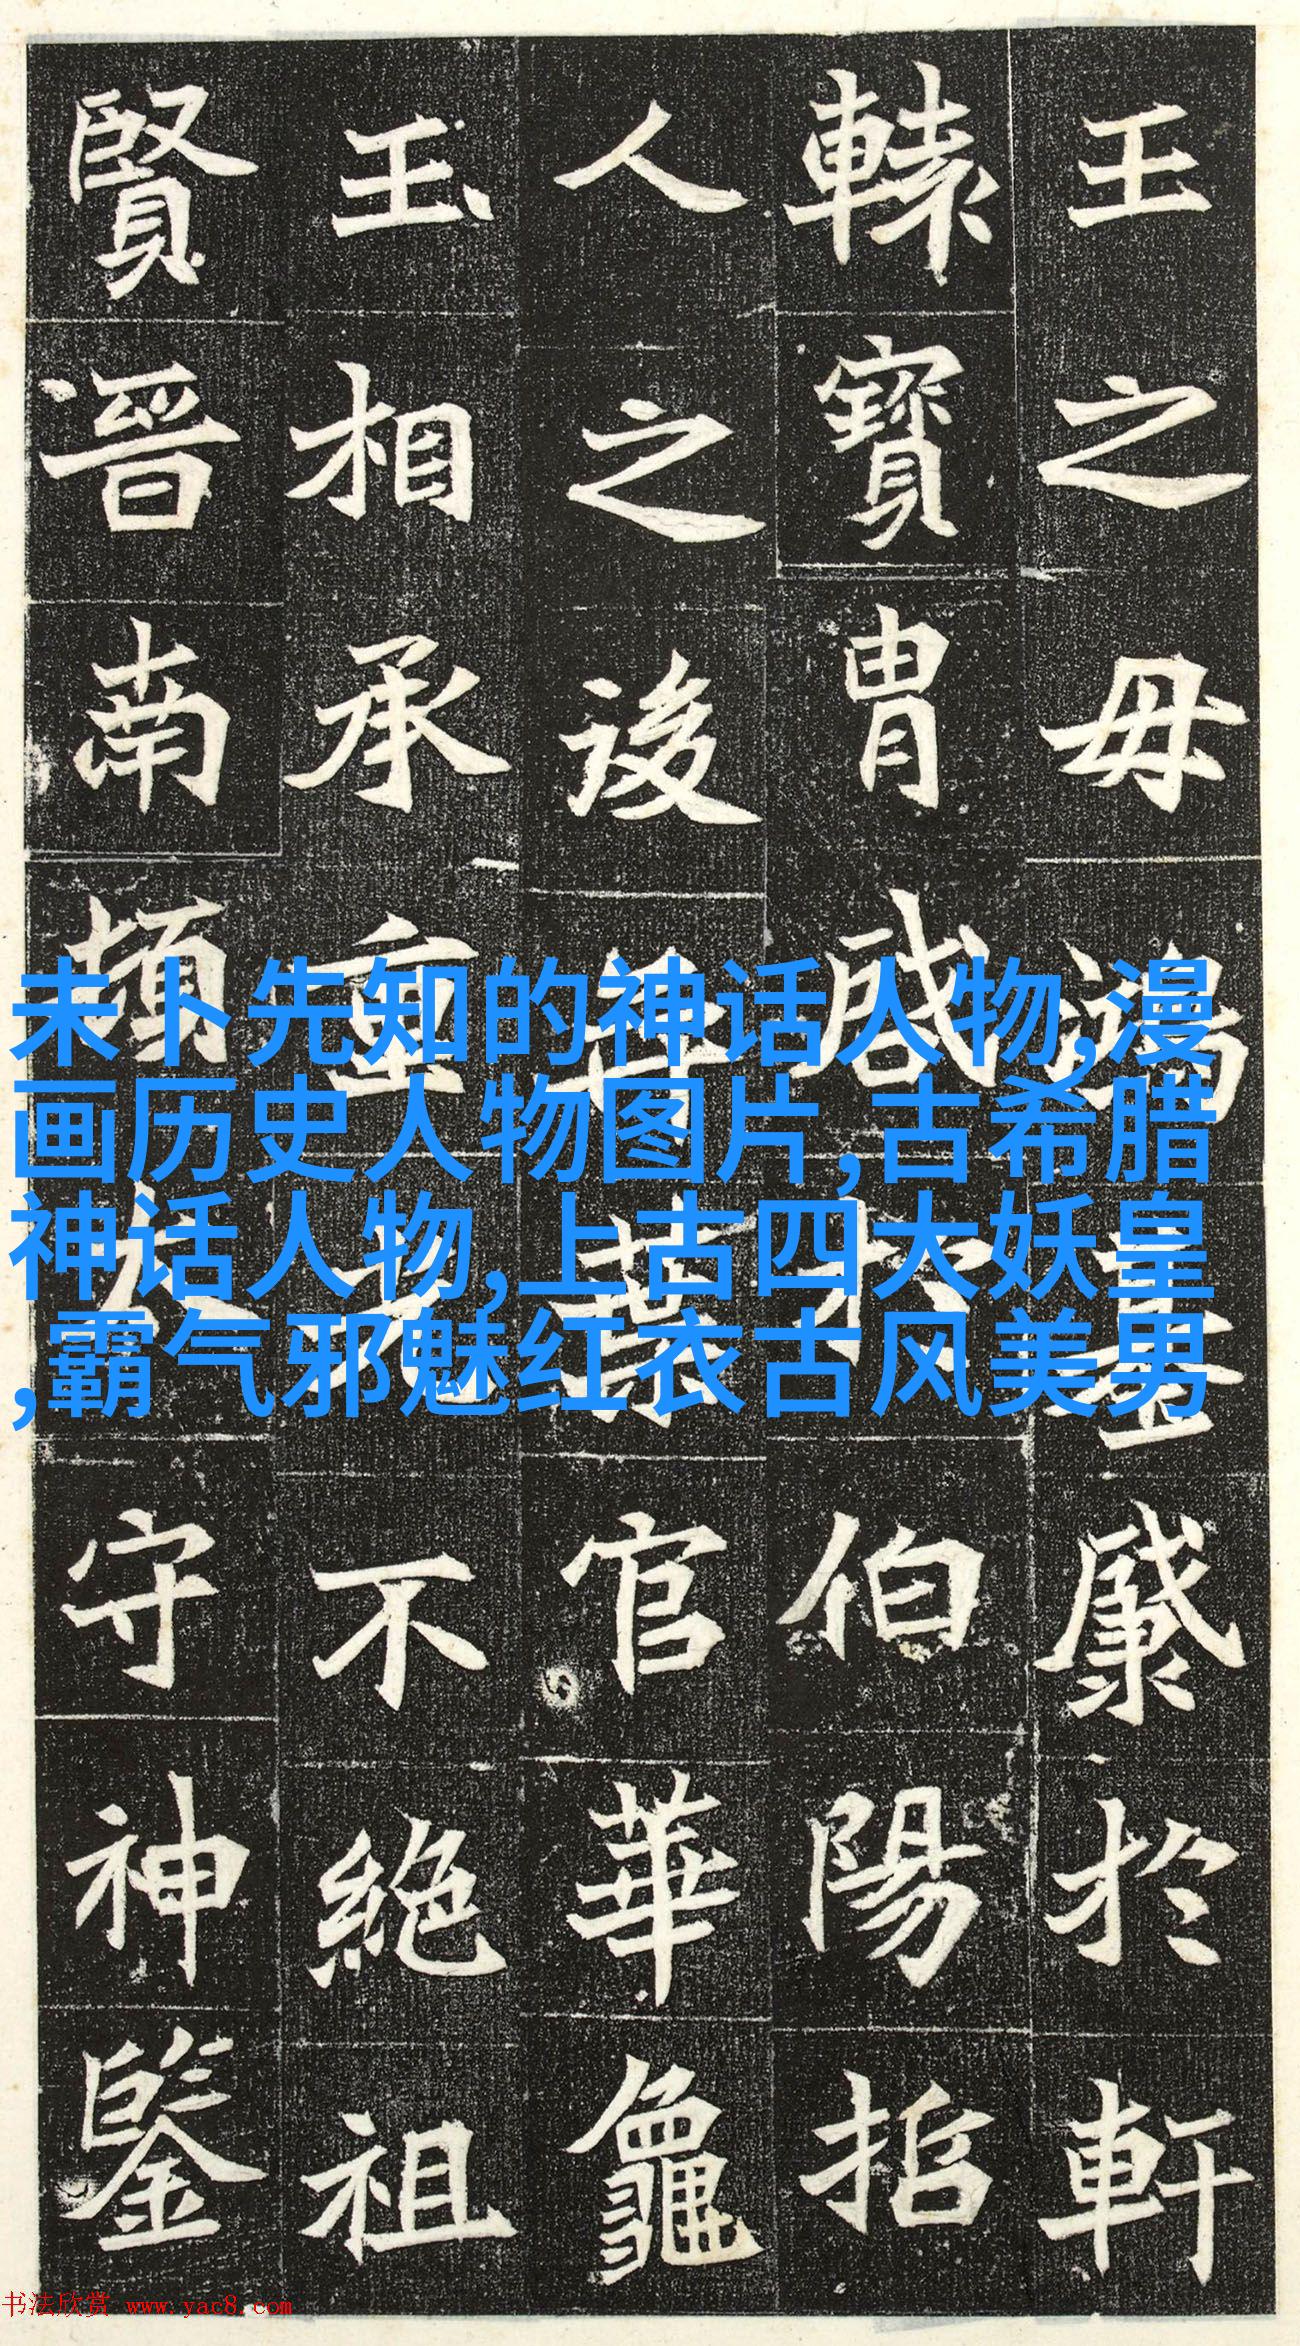 王之母鴻基於軒
轅寶胄於伯陽招
人之後世葉官華龜
玉相承重光不絕祖
賢晉南頓太守神鑒
未卜先知的神话人物,漫
画历史人物图片,古希腊
神话人物,上古四大妖皇
,霸气邪魅红衣古风美男
书法欣赏 www.yac8.com